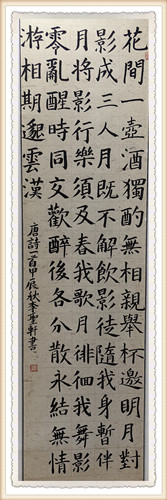 花間一壺酒獨酌無相親舉杯邀明月對
影成三人月既不解飲影徒隨我身暫伴
月將影行樂須及春我歌月徘徊我舞影
零亂醒時同交歡醉後各分散永結無情
游相期邈雲漢
唐詩一首甲辰秋李聖軒書